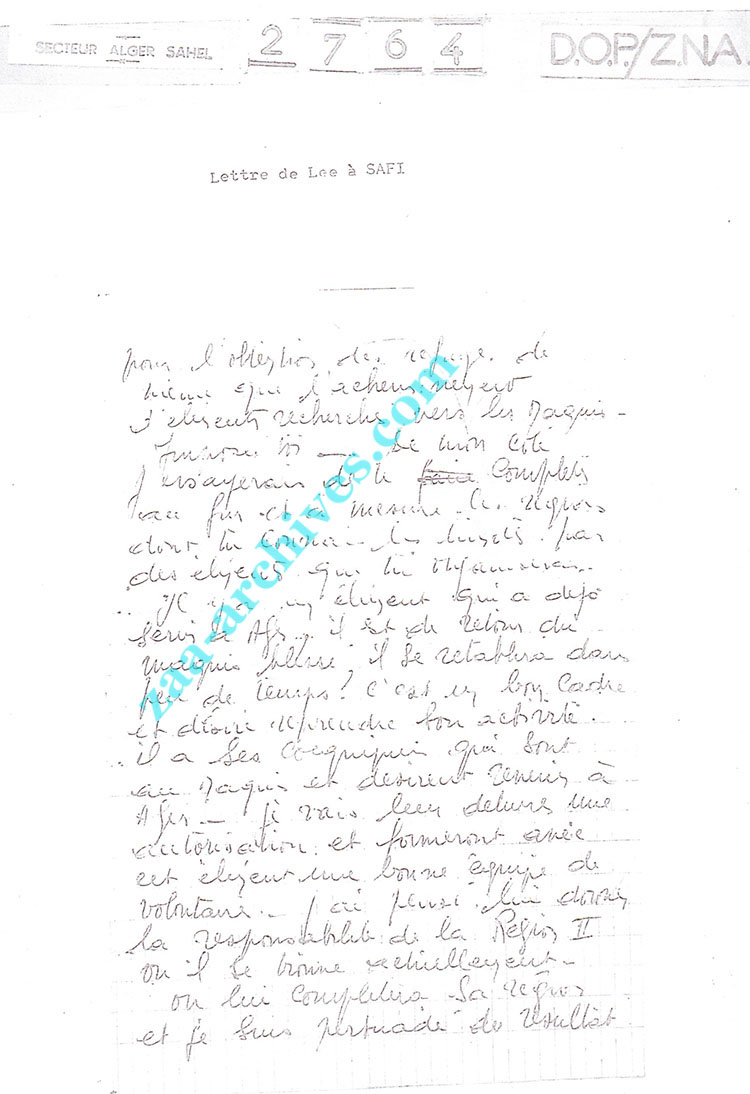 SECTEUR ALGER SAHEL
2764
D.O.P/Z.N.A.
Lettre de Lee à SAFI
pour l'obtention des refuges de
même que l'acheminement
d'éléments recherchés vers les Maquis -
De mon côté
j'essayerais de te faire Compléter
au fur et à mesure les régions
dont tu les par
des élément que tu
Il y a un élément qui a dejà
servi à Alger, il est de retour du
maquis blessé, il se retablira dans
peu de temps! C'est un bon Cadre
et désire reprendre son activité.
il a ses Coequipiers qui sont
au Maquis et desirent venir à
Alger - je vais leur delivrer une
autorisation et formeront avec
cet élément une bonne équipe de
volontaire - j'ai pensé lui donner
la responsabilité de la Région II
où il se trouve actuellement -
on lui completera sa région
et je suis persuadé du résultat
zaa-archives.com